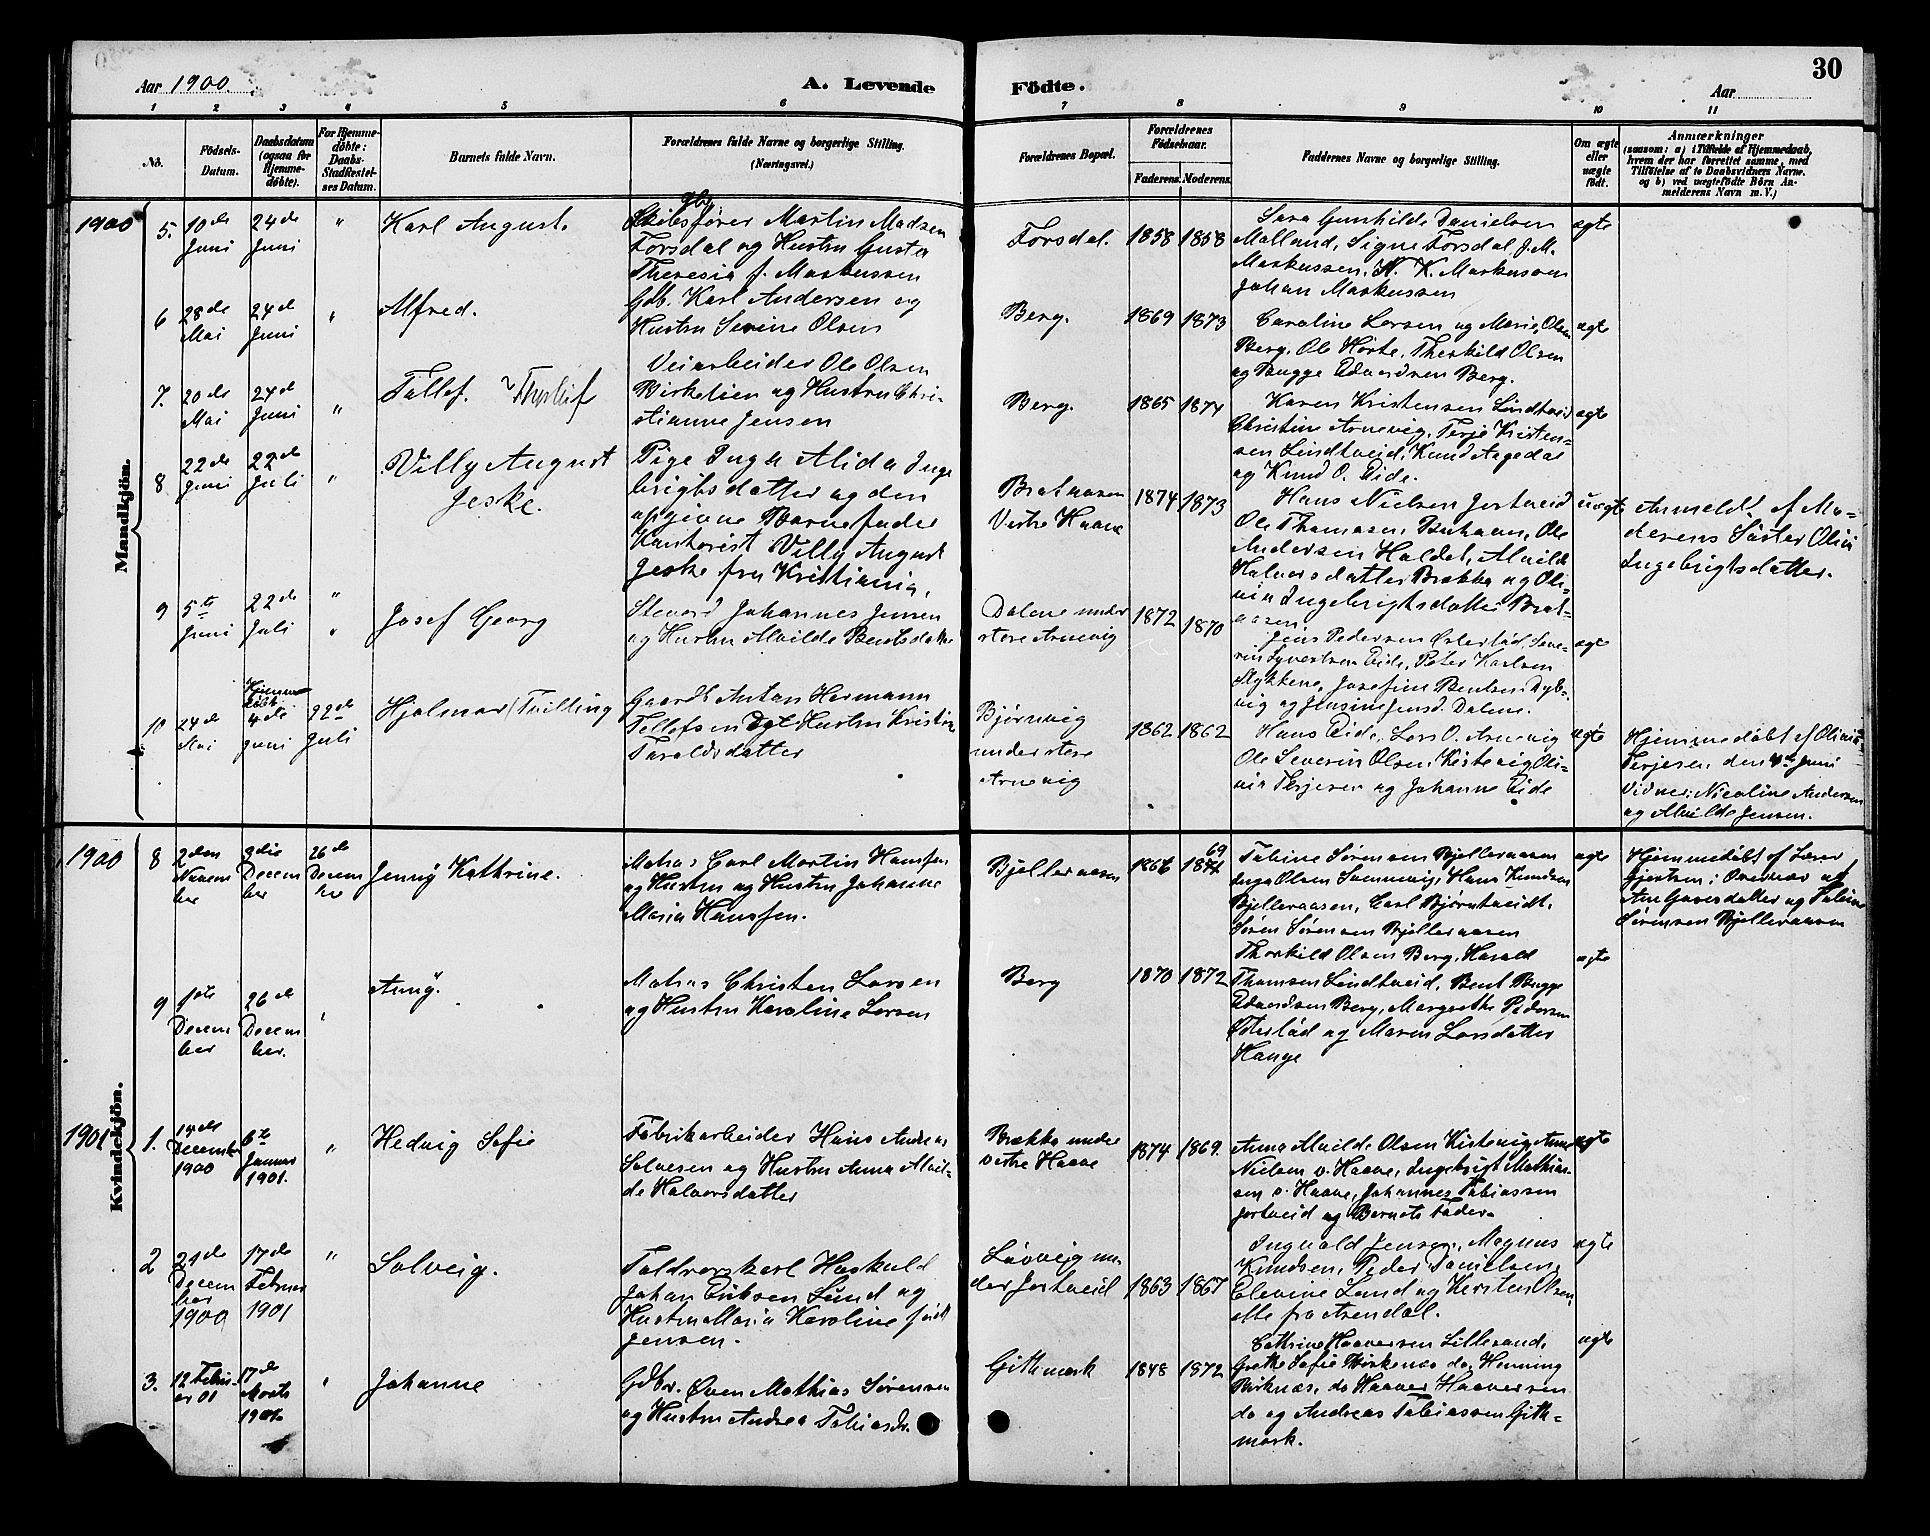 Aar 1900.
A. Levende Födte.
Aar
30
1 2 3 4 5 6 7 8 9 10 11
No.
Födsels-
Datum.
Daabsdatum
(ogsaa for
Hjemme-
döbte).
For Hjemme-
döbte:
Daabs-
Stadfæstel-
ses Datum.
Barnets fulde Navn.
Forældrenes fulde Navne og borgerlige Stilling.
(Næringsvei.)
Forældrenes Bopæl.
Forældrenes
Födselsaar.
Faderens. Moderens.
Faddernes Navne og borgerlige Stilling.
Om ægte
eller
uægte
födt.
Anmærkninger
(saasom: a) i Tilfælde af Hjemmedaab,
hvem der har forrettet samme, med
Tilföielse af to Daabsvidners Navne.
og b) ved uægtefödte Börn An-
melderens Navn m. V.)
Mandkjön.
1900
5. 10de Juni
24de Juni
"
Karl August.
Skibsfører Martin Madsen
Forsdal og Hustru Gusta
Theresia f. Markussen
Forsdal.
1858 1858
Sara Gunhilde Danielsen
Malland, Signe Forsdal, J. M.
Markussen, N. K. Markussen
Johan Markussen
ægte
6 28de Mai
24de Juni
"
Alfred.
Gdb. Karl Andersen og
Hustru Serine Olsen
Berg.
1869 1873
Caroline Larsen og Marie Olsen
Berg, Ole Hørte, Therkild Olsen
og Bugge Edvardsen Berg.
ægte
7. 20de Mai
24de Juni
"
Tallef.
Veiarbeider Ole Olsen
Birkelien og Hustru Chri-
stianne Jensen
Berg.
1865 1874
Karen Kristensen Lindtveid
Christine Arnevig, Terje Kristen-
sen Lindtveid, Knud Aagedal
og Knud O. Eide.
ægte
8 22de Juni
22de Juli
"
Villy August
Jeske.
Pige Inga Alida Inge
brigtsdatter og den
opgivne Barnefader
Kontorist Villy August
Jeske fra Kristiania.
Brataasen
Vestre Haave
1874 1873
Hans Nielsen Jortveid
Ole Thomasen Buhaven, Ole
Andersen Haldal, Alvilde
Halvorsdatter Brække og Oli-
via Ingebrigtsdatter Brat-
aasen.
uægte
Anmeldt af Mo-
derens Søster Olivia
Ingebrigtsdatter.
9 5te Juni
22de Juli
"
Josef Georg
Steward Johannes Jensen
og Hustru Alvilde Bentsdatter
Dalene under
store Arnevig
1872 1870
Jens Pedersen Østerlid, Seve-
rin Syvertsen Eide, Peter Karlsen
Stykkene, Josefine Bentsen Dyb-
vig og Jensine Jensd. Dalene.
ægte
10 24de Mai
Hjemme
døbt
4de Juni
22de Juli
Hjalmar (Tvilling
Gaardb. Anton Hermann
Tellefsen og Hustru Kristine
Taraldsdatter
Bjørnvig
under store
Arnevig
1862 1862
Hans Eide, Lars O. Arnevig
Ole Severin Olsen, Kistevig, Oli-
via Terjesen og Johanne Eide
ægte
Hjemmedøbt af Olivia
Terjesen den 4de Juni
Vidner: Nicoline Andersen
og Alvilde Jensen.
Kvindekjön.
1900
8 2den Novem
ber
9die Decem
ber
26de Decem
ber
Jenny Kathrine.
Matros Carl Martin Hanssen
og Hustru og Hustru Johanne
Maria Hanssen.
Bjelleraasen
1866 69
1871
Tabine Sørensen Bjelleraasen
Inga Olsen Sømmevig, Hans Knudsen
Bjelleraasen, Carl Bjørntveidt,
Søren Sørensen Bjelleraasen
ægte
Hjemmedøbt af Lærer
Gjertsen i Overnær. af
Ane Gaversdatter og Tabine
Sørensen Bjelleraasen
9 1ste Decem
ber
26de Decem
ber.
"
Anny.
Matros Christen Larsen
og Hustru Karoline Larsen
Berg
1870 1872
Thorkild Olsen Berg, Harald
Thomsen Lindtveid, Bent Bugge
Edvardsen Berg, Margrethe Pedersen
Østerlid og Maren Larsdatter
Hauge
ægte
1901
1. 14de
December
1900
6te
Januar
1901.
"
Hedvig Sofie
Fabrikarbeider Hans Andreas
Salvesen og Hustru Anna Alvil-
de Halvorsdatter
Brække under
vestre Haave
1874 1869.
Anna Alvilde Olsen Kistevig, Anne
Nielsen v. Haave, Ingebrigt Mathias-
sen v. Haave, Johannes Tobiassen
Jortveid og Barnets Fader.
ægte
2 21de
Decem
ber
1900
17de
Februar
1901
"
Solveig.
Toldrorskarl Haskuld
Johan Eriksen Lund og
Hustru Maria Karoline født
Jensen.
Løvveig un-
der Jortveid
1863 1867
Ingvald Jensen, Magnus
Knudsen, Peder Danielsen,
Elevine Lund og Kersten Olsen,
alle fra Arendal.
ægte
3. 12 Febru-
ar 01
17de
Marts
1901
"
Johanne
Gdbr. Oven Mathias Sørensen
og Hustru Andrea Tobiasdr.
Githmark
1848 1872
Cathrine Haaversen Lillesand,
Grethe Sofie Birkenæs do, Henning
Birknæs, do Haaver Haaversen
do og Andreas Tobiassen Gith-
mark.
ægte